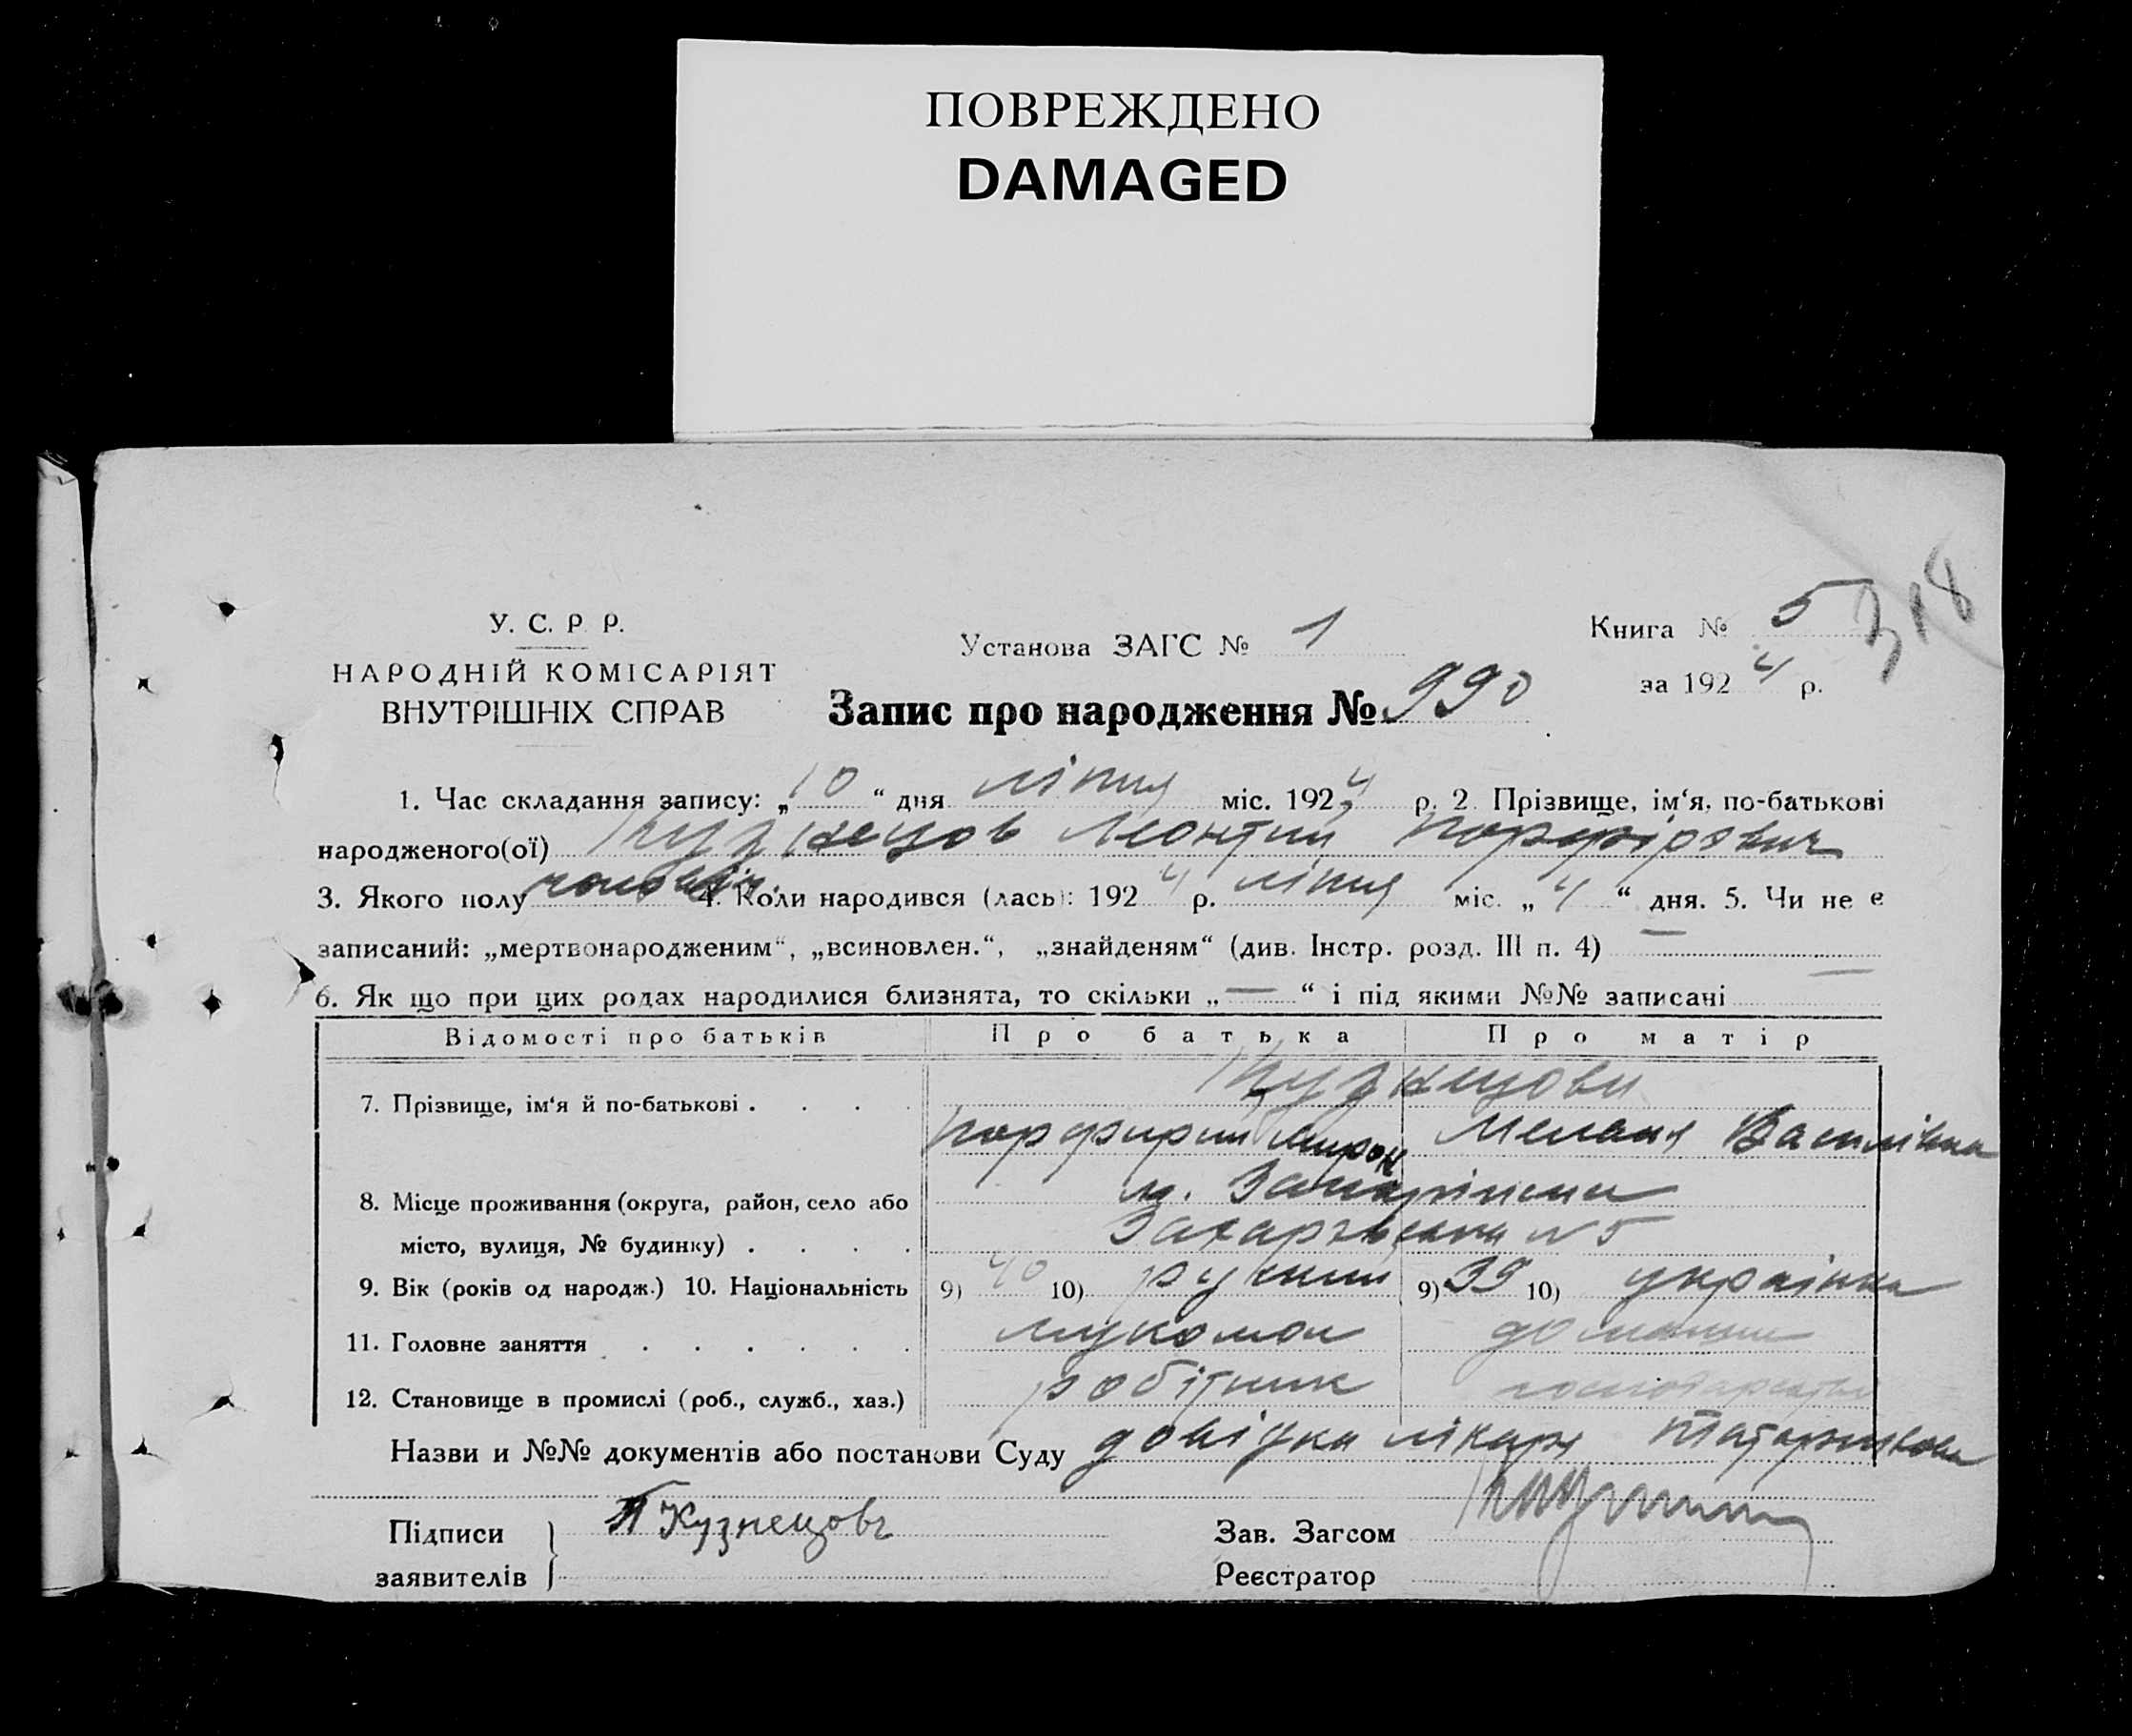 ПОВРЕЖДЕНО
DAMAGED
318
У. С. Р Р.
НАРОДНІЙ КОМІСАРІЯТ
ВНУТРІШНІХ СПРАВ
Установа ЗАГС № 1
Книга № 5
за 1924 р.
Запис про народження № 990
1. Час складання запису: „10“ дня ліпня міс. 1924 р. 2 Прізвище, ім‘я, по-батькові
народженого(ої) Кузнецов Леонтий Порфірович
3. Якого полу чоловіч. 4. Коли народився (лась): 1924 р. ліпня міс. „4“ дня. 5. Чи не є
записаний: „мертвонародженим“, „всиновлен.“, „знайденям“ (див. Інстр. розд. III п. 4) —
6. Як що при цих родах народилися близнята, то скільки „—“ і під якими №№ записані —
Відомості про батьків Про батька Про матір
7. Прізвище, ім‘я й по-батькові . . . . Кузнецови
Порфирий Мирон Меланя Василівна
8. Місце проживання (округа, район, село або м.
місто, вулиця, № будинку) . . . . N 5
9. Вік (років од народж.) 10. Національність 9) 40 10) руський 9) 39 10) українка
11. Головне заняття . . . . . . мукомол домашнє
12. Становище в промислі (роб., служб., хаз.) робітник господарство
Назви и №№ документів або постанови Суду довідка лікаря
Підписи П Кузнецовъ Зав. Загсом
заявителів Реєстратор